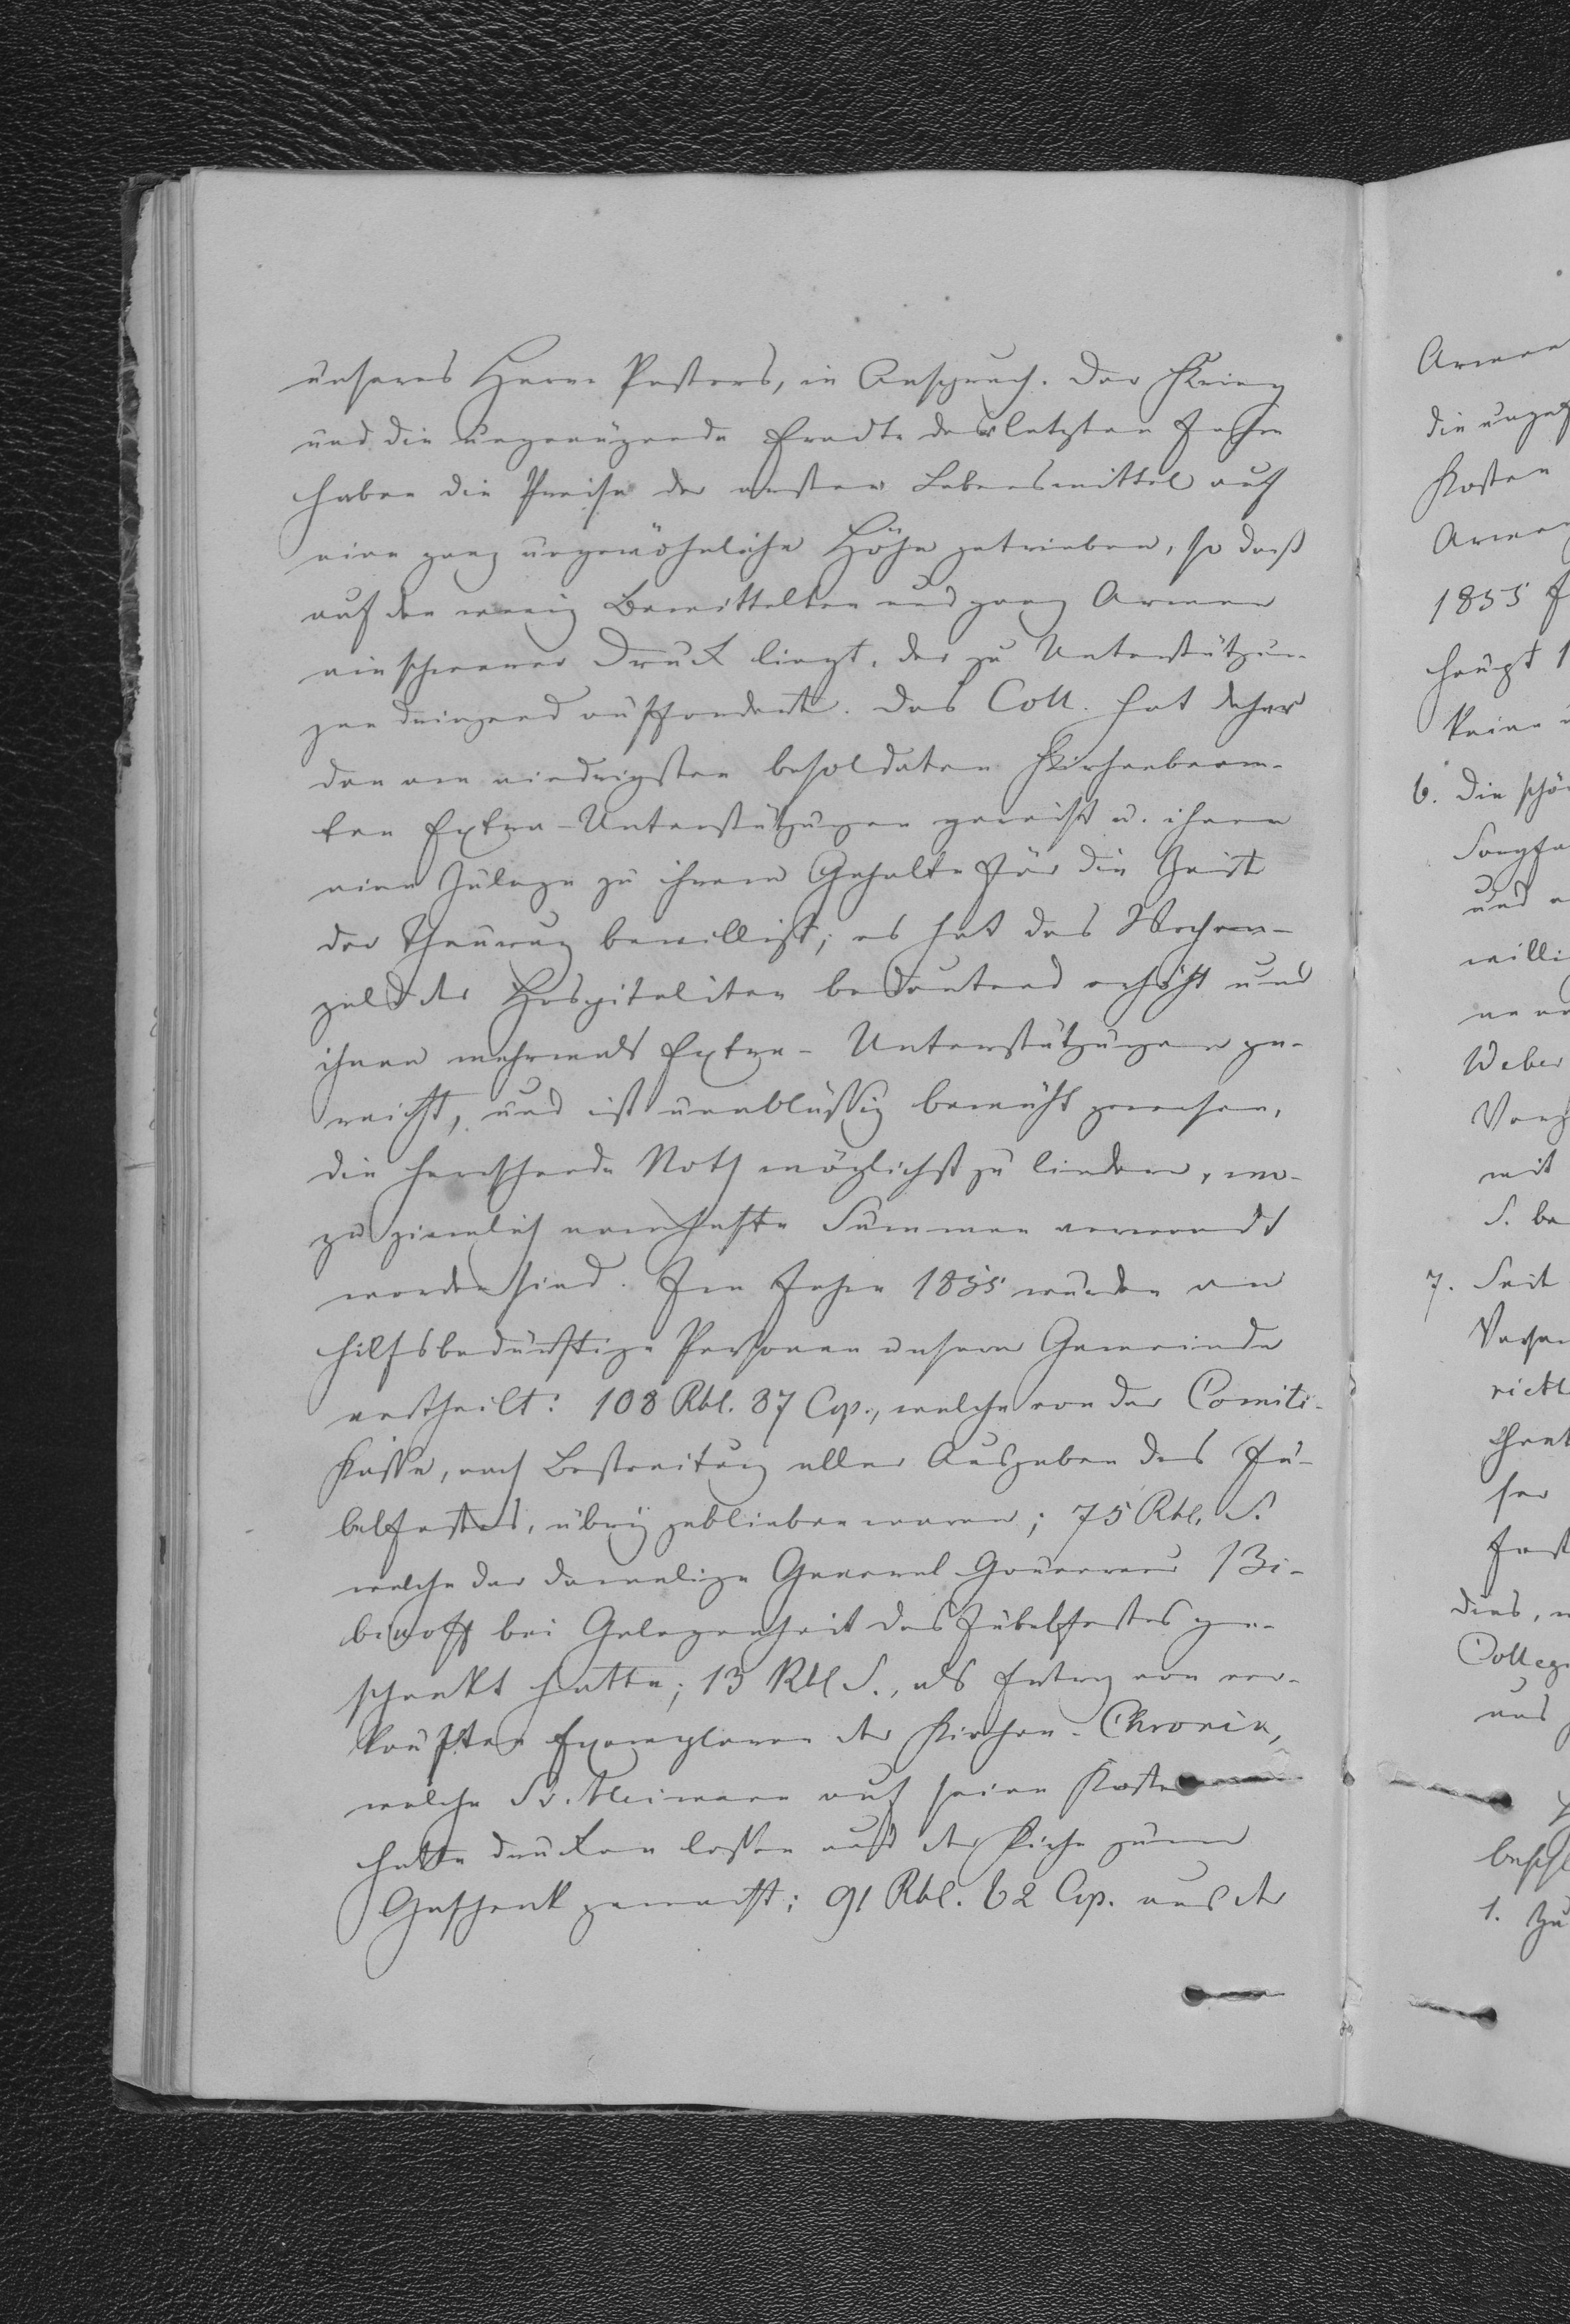 unseres Herrn Pastors, in Anspruch. Der Krieg
und die ungenügende Erndte des letzten Jahres
haben die Preise der ersten Lebensmittel auf
eine ganz ungewöhnliche Höhe getrieben, so daß
auf den wenig Bemittelten und ganz Armen
ein schwerer Druck liegt, der zu Unterstützun-
gen dringend auffordert. Das Coll. hat daher
den am niedrigsten besoldeten Kirchenbeam-
ten Extra-Unterstützungen gereicht u. ihnen
eine Zulage zu ihrem Gehalte für die Zeit
der Theurung bewilligt; es hat das Wochen-
geld der Hospitaliten bedeutend erhöht und
ihnen mehrmals Extra-Unterstützungen ge-
reicht, und ist unablässig bemüht gewesen,
die herrschende Noth möglichst zu lindern, wo-
zu ziemlich namhafte Summen verwandt
worden sind. Im Jahre 1855 wurden an
hilfsbedürftige Personen unserer Gemeinde
vertheilt: 108 Rbl. 87 Cop., welche von der Comité-
Kasse, nach Bestreitung aller Ausgaben des Ju-
belfestes, übrig geblieben waren; 75 Rbl. S.
welche der damalige General Gouverneur Bi-
bikoff bei Gelegenheit des Jubelfestes ge-
schenkt hatte; 13 Rbl S., als Ertrag von ver-
kauften Exemplaren der Kirchen-Chronik,
welche auf seine Kosten
hatte drucken lassen und der Kirche zum
Geschenk gemacht; 91 Rbl. 62 Cop. aus der
Armen
Kosten
Armen
1855
haupt
keine
6. Die
und
Weber
mit
S.
7. Seit
dies,
uns
1. Zu